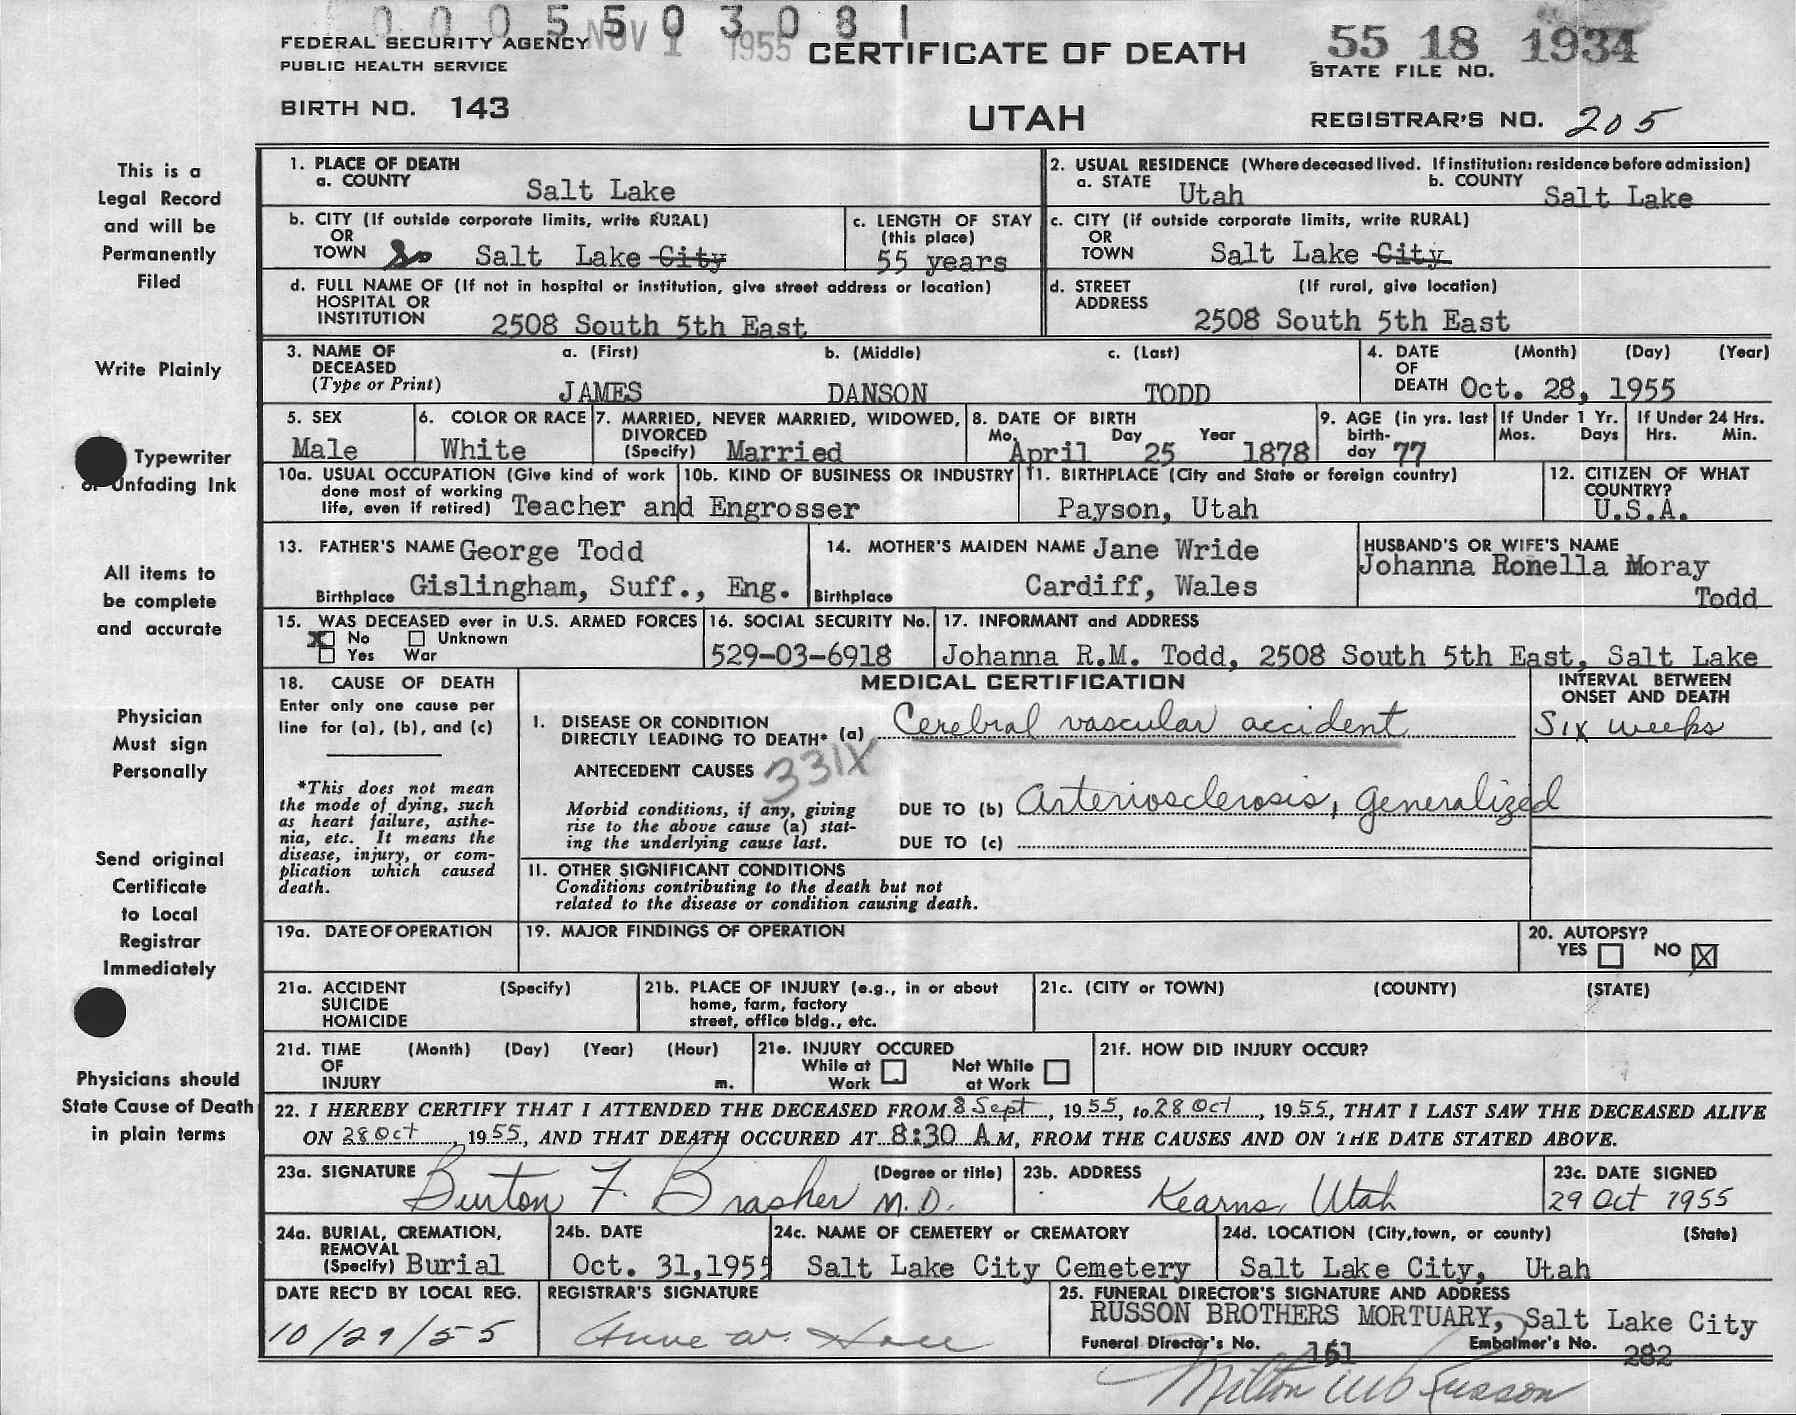 0 0 0 5 5 0 3 0 8 1
NOV 1 1955
FEDERAL SECURITY AGENCY
PUBLIC HEALTH SERVICE
CERTIFICATE OF DEATH
55 18 1934
STATE FILE NO.
BIRTH NO. 143
UTAH
REGISTRAR'S NO. 205
This is a
Legal Record
and will be
Permanently
Filed
Write Plainly
Typewriter
or Unfading Ink
All items to
be complete
and accurate
Physician
Must sign
Personally
Send original
Certificate
to Local
Registrar
Immediately
Physicians should
State Cause of Death
in plain terms
1. PLACE OF DEATH
a. COUNTY
Salt Lake
2. USUAL RESIDENCE (Where deceased lived. If institution: residence before admission)
a. STATE Utah b. COUNTY Salt Lake
b. CITY (If outside corporate limits, write RURAL)
OR
TOWN So Salt Lake City
c. LENGTH OF STAY
(this place)
55 years
c. CITY (if outside corporate limits, write RURAL)
OR
TOWN Salt Lake City
d. FULL NAME OF (If not in hospital or institution, give street address or location)
HOSPITAL OR
INSTITUTION 2508 South 5th East
d. STREET (If rural, give location)
ADDRESS
2508 South 5th East
3. NAME OF a. (First) b. (Middle) c. (Last)
DECEASED
(Type or Print) JAMES DANSON TODD
4. DATE (Month) (Day) (Year)
OF
DEATH Oct. 28, 1955
5. SEX
Male
6. COLOR OR RACE
White
7. MARRIED, NEVER MARRIED, WIDOWED,
DIVORCED
(Specify) Married
8. DATE OF BIRTH
Mo. Day Year
April 25 1878
9. AGE (in yrs. last
birth-
day 77
If Under 1 Yr.
Mos. Days
If Under 24 Hrs.
Hrs. Min.
10a. USUAL OCCUPATION (Give kind of work
done most of working
life, even if retired) Teacher and Engrosser
10b. KIND OF BUSINESS OR INDUSTRY
11. BIRTHPLACE (City and State or foreign country)
Payson, Utah
12. CITIZEN OF WHAT
COUNTRY?
U.S.A.
13. FATHER'S NAME George Todd
Birthplace Gislingham, Suff., Eng.
14. MOTHER'S MAIDEN NAME Jane Wride
Birthplace Cardiff, Wales
HUSBAND'S OR WIFE'S NAME
Johanna Ronella Moray
Todd
15. WAS DECEASED ever in U.S. ARMED FORCES
X No Unknown
Yes War
16. SOCIAL SECURITY No.
529-03-6918
17. INFORMANT and ADDRESS
Johanna R.M. Todd, 2508 South 5th East, Salt Lake
18. CAUSE OF DEATH
Enter only one cause per
line for (a), (b), and (c)
*This does not mean
the mode of dying, such
as heart failure, asthe-
nia, etc. It means the
disease, injury, or com-
plication which caused
death.
MEDICAL CERTIFICATION
INTERVAL BETWEEN
ONSET AND DEATH
I. DISEASE OR CONDITION
DIRECTLY LEADING TO DEATH* (a) Cerebral vascular accident Six weeks
ANTECEDENT CAUSES 331X
Morbid conditions, if any, giving
rise to the above cause (a) stat-
ing the underlying cause last.
DUE TO (b) Arteriosclerosis, generalized
DUE TO (c)
II. OTHER SIGNIFICANT CONDITIONS
Conditions contributing to the death but not
related to the disease or condition causing death.
19a. DATE OF OPERATION
19. MAJOR FINDINGS OF OPERATION
20. AUTOPSY?
YES NO X
21a. ACCIDENT (Specify)
SUICIDE
HOMICIDE
21b. PLACE OF INJURY (e.g., in or about
home, farm, factory
street, office bldg., etc.
21c. (CITY or TOWN) (COUNTY) (STATE)
21d. TIME (Month) (Day) (Year) (Hour)
OF
INJURY m.
21e. INJURY OCCURED
While at Not While
Work at Work
21f. HOW DID INJURY OCCUR?
22. I HEREBY CERTIFY THAT I ATTENDED THE DECEASED FROM 8 Sept, 1955, to 28 Oct, 1955, THAT I LAST SAW THE DECEASED ALIVE
ON 28 Oct, 1955, AND THAT DEATH OCCURED AT 8:30 A M, FROM THE CAUSES AND ON THE DATE STATED ABOVE.
23a. SIGNATURE (Degree or title)
Burton F. Brasher M.D.
23b. ADDRESS
Kearns, Utah
23c. DATE SIGNED
29 Oct 1955
24a. BURIAL, CREMATION,
REMOVAL
(Specify) Burial
24b. DATE
Oct. 31,1955
24c. NAME OF CEMETERY or CREMATORY
Salt Lake City Cemetery
24d. LOCATION (City, town, or county) (State)
Salt Lake City, Utah
DATE REC'D BY LOCAL REG.
10/29/55
REGISTRAR'S SIGNATURE
Anne W.
25. FUNERAL DIRECTOR'S SIGNATURE AND ADDRESS
RUSSON BROTHERS MORTUARY, Salt Lake City
Funeral Director's No. 161 Embalmer's No. 282
Milton Russon